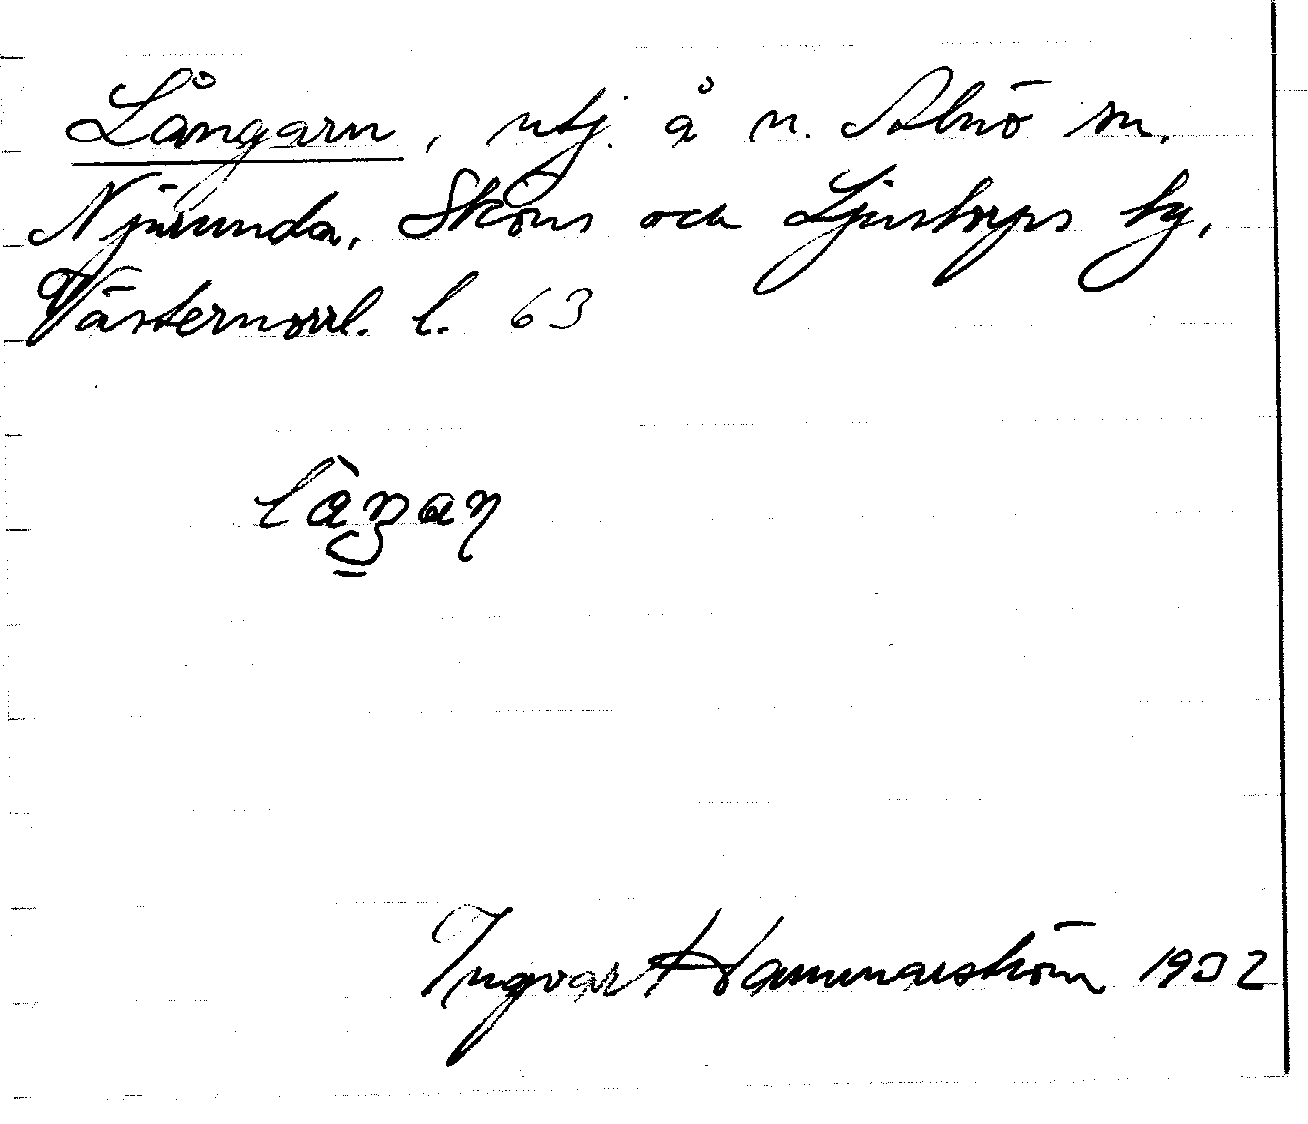 Långarn, utj. å n. Alnö sn.
Njurunda, Sköns och Ljustorps tg,
Västernorrl. l. 63
Ingvar Hammarström 1932